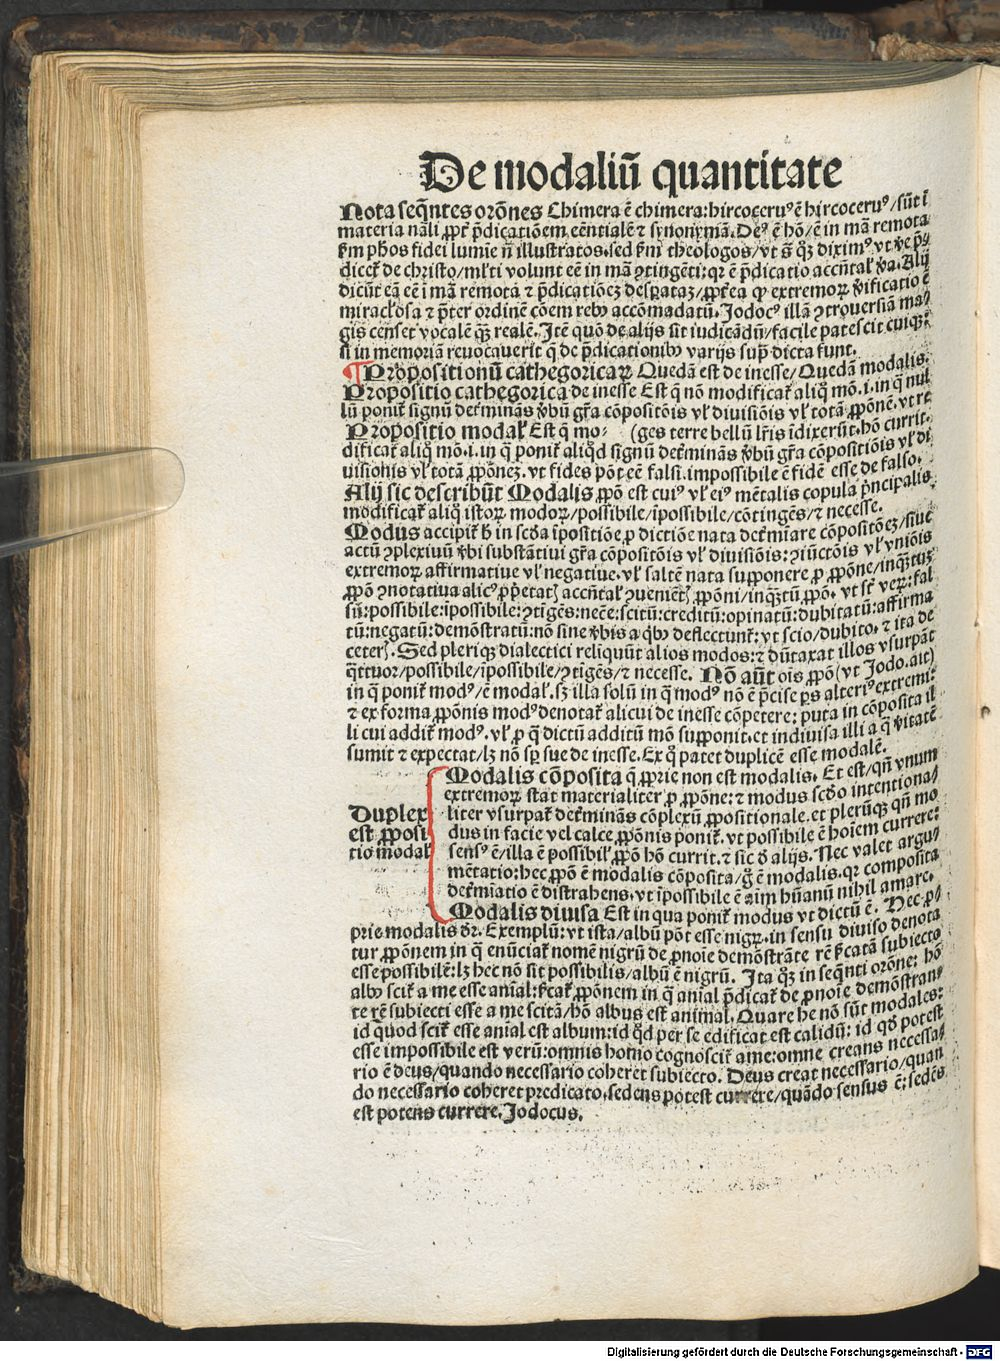 De modaliū quantitate
Nota seq̄ntes orōnes Chimera ē chimera:hircoceruꝰ ē hircoceruꝰ/sūt ī
materia nāli ꝓpt̄ p̄dicatiōem eēntialē ⁊ synonymā. Deꝰ ē hō/ē in mā remota
ẜm phos fidei lumīe nō illustratos.sed ẜm theologos/vt s̄ qꝫ diximꝰ vt ve p̄
dicet̄ de christo/ml̄ti volunt eē in mā ꝯtingēti:qr ē p̄dicatio accn̄tal̄ ꝟa. Alij
dicūt eā eē ī mā remota ⁊ p̄dicatiōeꝫ despataꝫ/ꝓpt̄ea ꝙ extremoꝝ ꝟificatio ē
miracl̄osa ⁊ p̄ter ordinē cōem rebꝰ accōmodatū. Jodocꝰ illā ꝯtrouersiā ma
gis censet vocalē qꝫ realē. Jtē quō de alijs sit iudicādū/facile patescit cuiqꝫ
si in memoriā reuocauerit q̄ de p̄dicationibꝰ varijs sup̄ dicta sunt.
¶ Propositionū cathegoricaꝝ Quedā est de inesse/Quedā modalis.
Propositio cathegorica de inesse Est q̄ nō modificat̄ aliq̄ mō.i.in q̄ nul
lū ponit̄ signū det̄minās ꝟbū gr̄a cōpositōis vl̄ diuisiōis vl̄ totā ꝓpōnē.vt re
Propositio modal̄ Est q̄ mo⸗ (ges terre bellū lr̄is īdixerūt.hō currit.
dificat̄ aliq̄ mō.i.in q̄ ponit̄ aliqd̄ signū det̄minās ꝟbū gr̄a cōpositiōis vl̄ di
uisionis vl̄ totā ꝓpōneꝫ.vt fides pōt eē falsi.impossibile ē fidē esse de falso.
Alij sic describūt Modalis ꝓpō est cuiꝰ vl̄ eiꝰ mētalis copula p̄ncipalis
modificat̄ aliq̄ istoꝝ modoꝝ/possibile/īpossibile/cōtingēs/⁊ necesse.
Modus accipit̄ h̄ in scd̄a īpositiōe ꝓ dictiōe nata det̄mīare cōpositōeꝫ/siue
actū ꝯplexiuū ꝟbi substātiui gr̄a cōpositōis vl̄ diuisiōis:ꝯiūctōis vl̄ vniōis
extremoꝝ affirmatiue vl̄ negatiue.vl̄ saltē nata supponere ꝓ ꝓpōne/inqꝫtū
ꝓpō ꝯnotatiua alicꝰ ꝓp̄etat accn̄tal̄ ꝯueniēt ꝓpōni/inqꝫtū ꝓpō. vt st̄ veꝝ:fal
sū:possibile:īpossibile:ꝯtigēs:necē:scitū:creditū:opinatū:dubitatū:affirma
tū:negatū:demōstratū:nō sine ꝟbis a qbꝰ deflectunt̄:vt scio/dubito. ⁊ ita de
ceter̄. Sed pleriqꝫ dialectici reliquūt alios modos:⁊ dūtaxat illos vsurpāt
q̄ttuor/possibile/īpossibile/ꝯtigēs/⁊ necesse. Nō aūt oīs ꝓpō(vt Jodo.ait)
in q̄ ponit̄ modꝰ/ē modal̄.sꝫ illa solū in q̄ modꝰ nō ē p̄cise ꝑs alteriꝰ extremi:
⁊ ex forma ꝓpōnis modꝰ denotat̄ alicui de inesse cōpetere: puta in cōposita il
li cui addit̄ modꝰ.vl̄ ꝓ q̄ dictū additū mō supponit.et indiuisa illi a q̄ ꝟitatē
sumit ⁊ expectat/lꝫ nō sꝑ sue de inesse. Ex q̄ patet duplicē esse modalē.
Duplex
est ꝓposi
tio modal̄
Modalis cōposita q̄ ꝓprie non est modalis. Et est/qn̄ vnum
extremoꝝ stat materialiter ꝓ ꝓpōne:⁊ modus scd̄o intentiona
liter vsurpat̄ det̄minās cōplexū ꝓpositionale.et plerūqꝫ qn̄ mo
dus in facie vel calce ꝓpōnis ponit̄. vt possibile ē hoīem currere:
sensꝰ ē/illa ē possibil̄ ꝓpō hō currit.⁊ sic d̄ alijs. Nec valet argu⸗
mētatio:hec ꝓpō ē modalis cōposita/g̊ ē modalis.qr composita
det̄mīatio ē distrahens.vt īpossibile ē aīm hūanū nihil amare.
Modalis diuisa Est in qua ponit̄ modus vt dictū ē. Hec ꝓ
prie modalis dr̄. Exemplū:vt ista/albū pōt esse nigꝝ.in sensu diuiso denota
tur ꝓpōnem in q̄ enūciat̄ nomē nigrū de ꝓnoīe demōstrāte rē ẜcatā subiecto
esse possibilē:lꝫ hec nō sit possibilis/albū ē nigrū. Jta qꝫ in seq̄nti orōne: hō
albꝰ scit̄ a me esse anīal:ẜcat̄ ꝓpōnem in q̄ anīal p̄dicat̄ de ꝓnoīe demōstran⸗
te rē subiecti esse a me scitā/hō albus est animal. Quare he nō sūt modales:
id quod scit̄ esse anīal est album:id qd̄ per se edificat est calidū: id qd̄ potest
esse impossibile est verū:omnis homo cognoscit̄ a me:omne creans necessa⸗
rio ē deus/quando necessario coheret subiecto. Deus creat necessario/quan
do necessario coheret predicato.sedens potest currere/quādo sensus ē:sedēs
est potens currere. Jodocus.
Digitalisierung gefördert durch die Deutsche Forschungsgemeinschaft - DFG